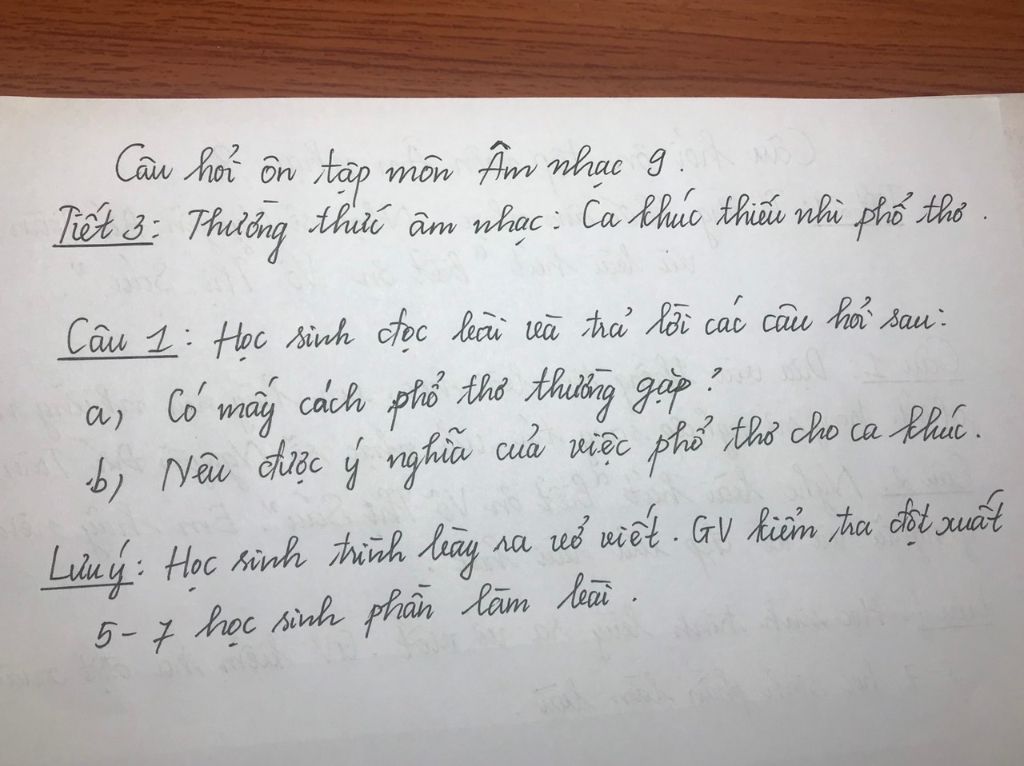 Câu hỏi ôn tập môn Âm nhạc 9.
Tiết 3: Thường thức âm nhạc: Ca khúc thiếu nhi phổ thơ.
Câu 1: Học sinh đọc bài và trả lời các câu hỏi sau:
a, Có mấy cách phổ thơ thường gặp?
b, Nêu được ý nghĩa của việc phổ thơ cho ca khúc.
Lưu ý: Học sinh trình bày ra vở viết. GV kiểm tra đột xuất
5-7 học sinh phần làm bài.